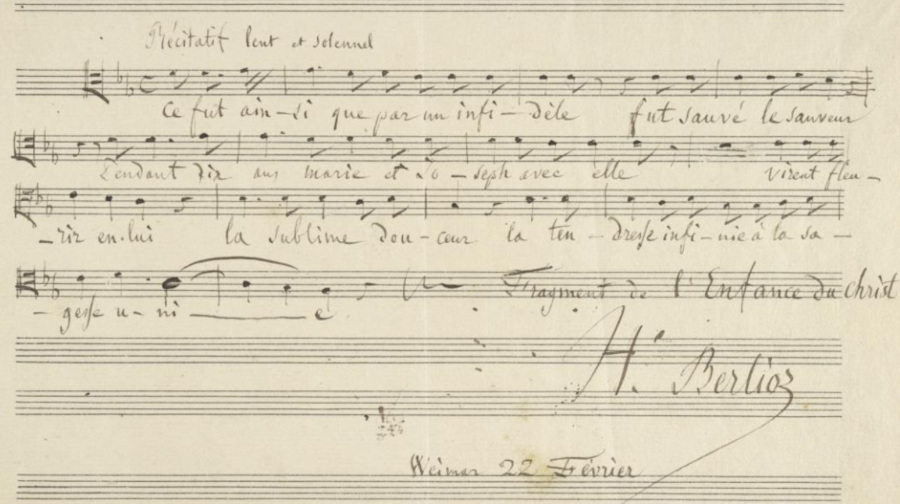 Récitatif lent et solennel
ce fut ain-si que par un infi-dèle fut sauvé le sauveur
Pendant dix ans marie et Jo-seph avec elle virent fleu-
-rir en lui la sublime dou-ceur la ten-dresse infi-nie à la sa-
-gesse u-ni-e
Fragment de l'Enfance du christ
H. Berlioz
Weimar 22 Février